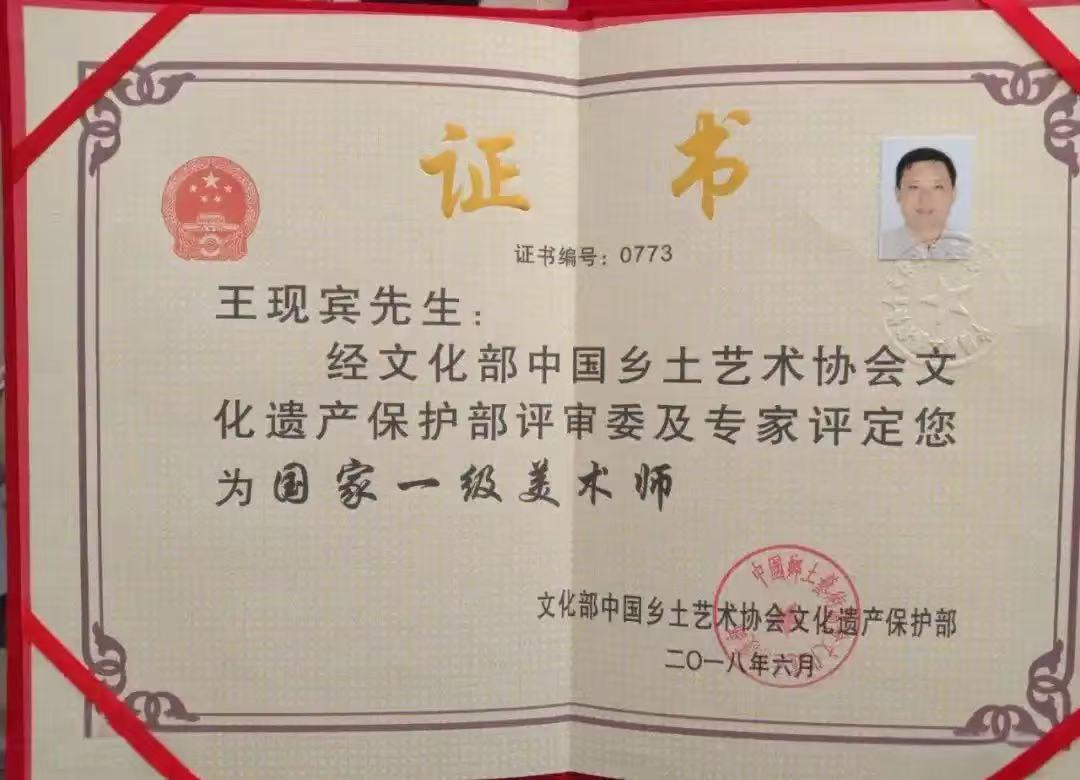 证 书
证书编号：0773
王现宾先生：
经文化部中国乡土艺术协会文
化遗产保护部评审委及专家评定您
为国家一级美术师
文化部中国乡土艺术协会文化遗产保护部
二〇一八年六月
中國鄉土藝術